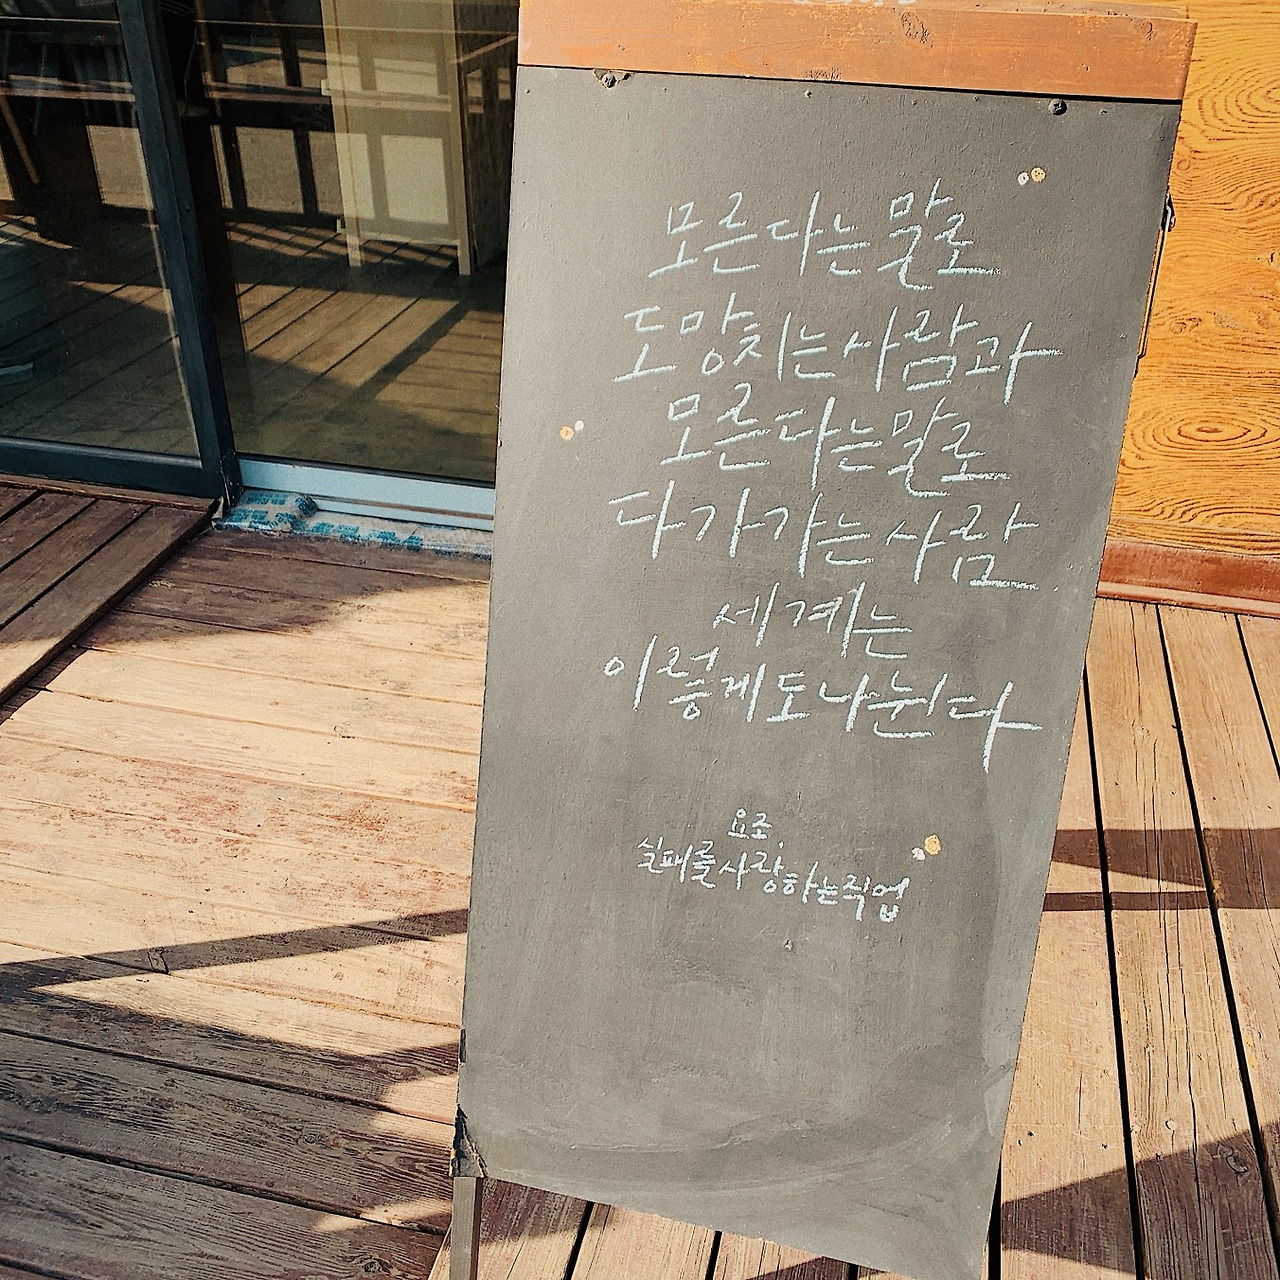 모른다는 말로
도망치는 사람과
모른다는 말로
다가가는 사람
세계는
이렇게도 나뉜다
요조,
실패를 사랑하는 직업